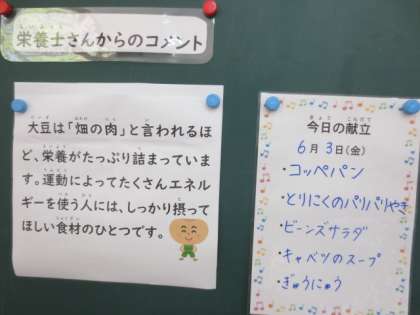 栄養士さんからのコメント
大豆は「畑の肉」と言われるほ
ど、栄養がたっぷり詰まっていま
す。運動によってたくさんエネル
ギーを使う人には、しっかり摂って
ほしい食材のひとつです。
今日の献立
6月3日(金)
・コッペパン
・とりにくのパリパリやき
・ビーンズサラダ
・キャベツのスープ
・ぎゅうにゅう